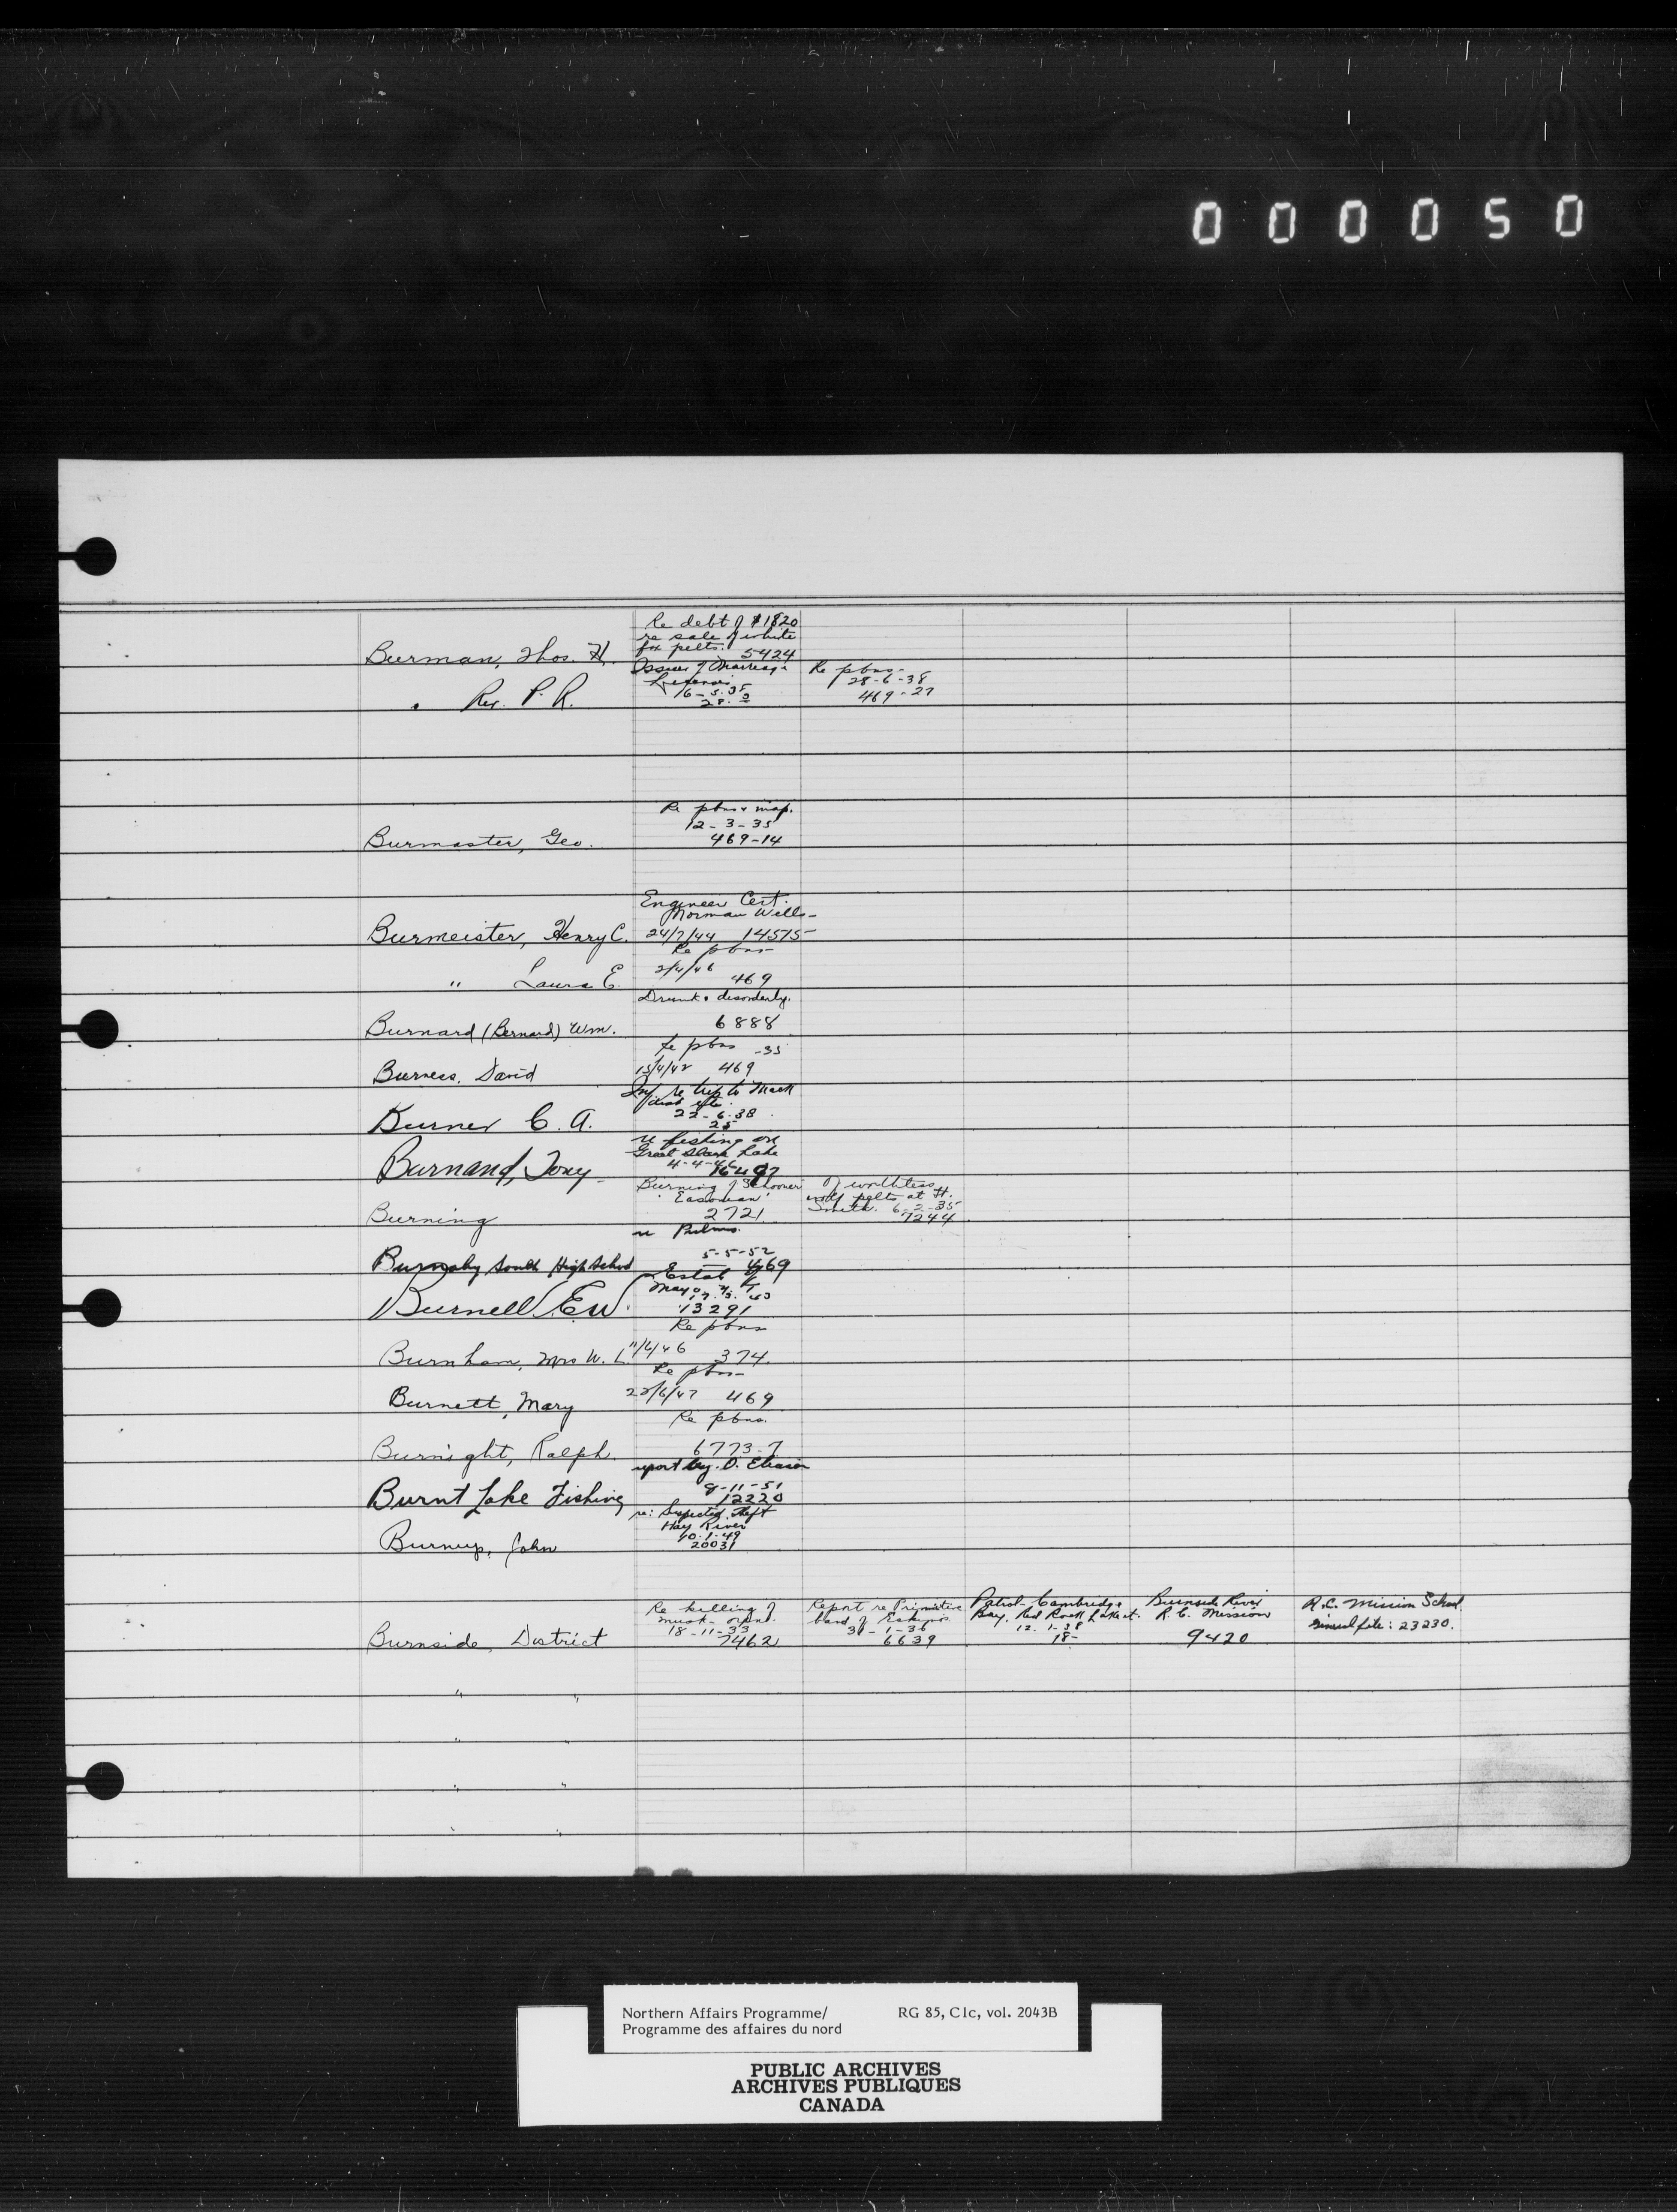 000050
Re debt of $1820
re sale of white
fox pelts.
Burman, Thos. H. 5424
Issuer of Marriage
Licenses
16-5-35
" Rev. P. R. 28-2
Re pbns-
28-6-38
469-27
Re pbns & map.
12-3-35
Burmaster, Geo. 469-14
Engineer Cert.
Norman Wells-
Burmeister, Henry C. 24/7/44 14575
Re pbns
2/4/46
" Laura E. 469
Drunk & disorderly.
Burnard (Bernard) Wm. 6888
Re pbns -35
Burness, David 15/4/42 469
Inf. re trip to Mack
dist etc.
22-6-38
Burner C. A. 25
re fishing on
Great Slave Lake
4-4-46
Burnand, Tony 16497
Burning of Schooner
Burning 2721
Of worthless
wolf pelts at Ft.
Smith. 6-2-35
7244
re Films.
5-5-52
Burnaby South High School 469
Estab
Mayo Y.T.
Burnell E W. 13291
Re pbns
Burnham, Mrs W. L. 11/6/46 374
Re pbns-
Burnett, Mary 23/6/47 469
Re pbns.
Burnight, Ralph 6773-7
report by. O. Eliason
8-11-51
Burnt Lake Fishing 12220
re: Suspected Theft
Hay River
10-1-49
Burnup, John 20031
Re killing of
musk-oxen.
18-11-33
Burnside, District 7462
Report re Primitive
band of Eskimos
31-1-36
6639
Patrol-Cambridge
Bay, Red Rock Lake it.
12-1-38
18-
Burnside River
R. C. Mission
9420
R.C. Mission School.
General file: 23230.
" "
"
" "
" "
Northern Affairs Programme/ RG 85, C1c, vol. 2043B
Programme des affaires du nord
PUBLIC ARCHIVES
ARCHIVES PUBLIQUES
CANADA